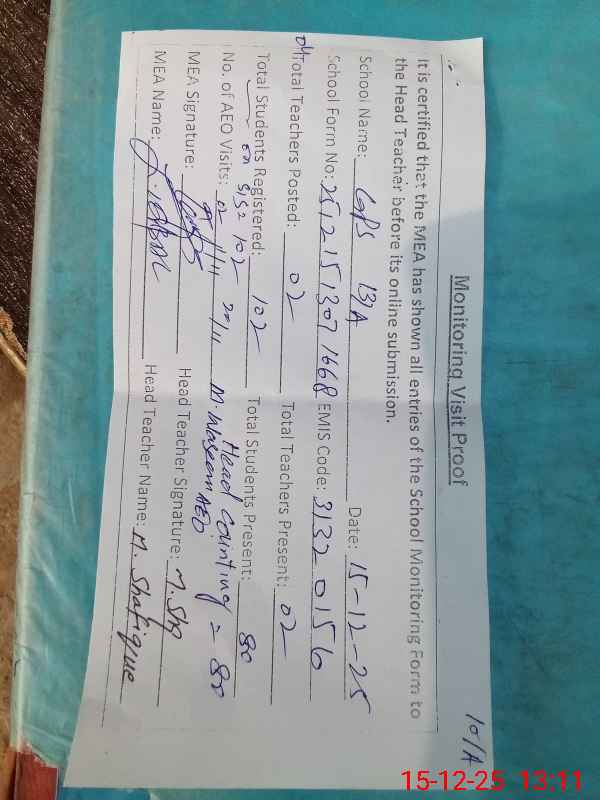 10/A
Monitoring Visit Proof
It is certified that the MEA has shown all entries of the School Monitoring Form to
the Head Teacher before its online submission.
School Name: GPS 137A Date: 15-12-25
School Form No: 2512151307 1668 EMIS Code: 31320156
04 Total Teachers Posted: 02 Total Teachers Present: 02
Total Students Registered: 102 Total Students Present: 80
on SIS 102 Head Counting = 80
No. of AEO Visits: 02 M. Waseem AEO
MEA Signature: Head Teacher Signature: M. Sha
MEA Name: Head Teacher Name: M. Shafique
15-12-25 13:11